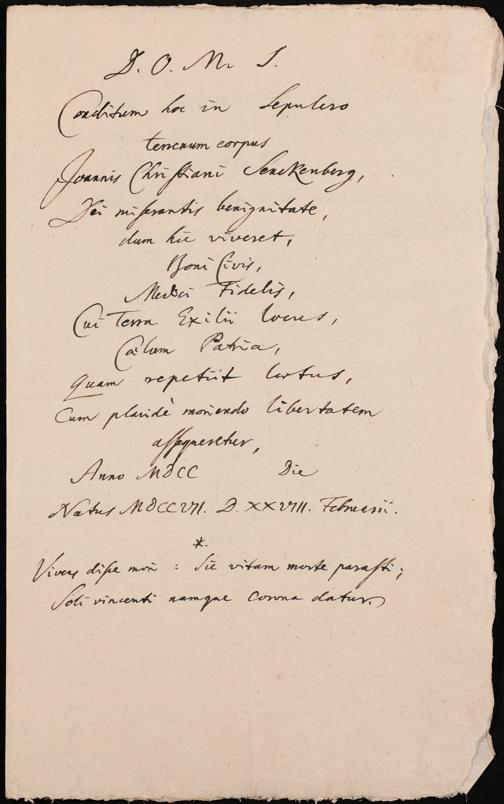 D. O. M. S.
Conditum hoc in Sepulcro
terrenum corpus
Joannis Christiani Senckenberg,
Dei miserantis benignitate,
dum hic viveret,
Boni Civis,
Medici Fidelis,
Cui Terra Exilii locus,
Cœlum Patria,
quam repetiit lætus,
Cum placidè moriendo libertatem
assequeretur,
Anno MDCC Die
Natus MDCCVII. D. XXVIII. Februarii.
*
Vivens disce mori: Sic vitam morte parasti;
Soli vincenti namque corona datur.